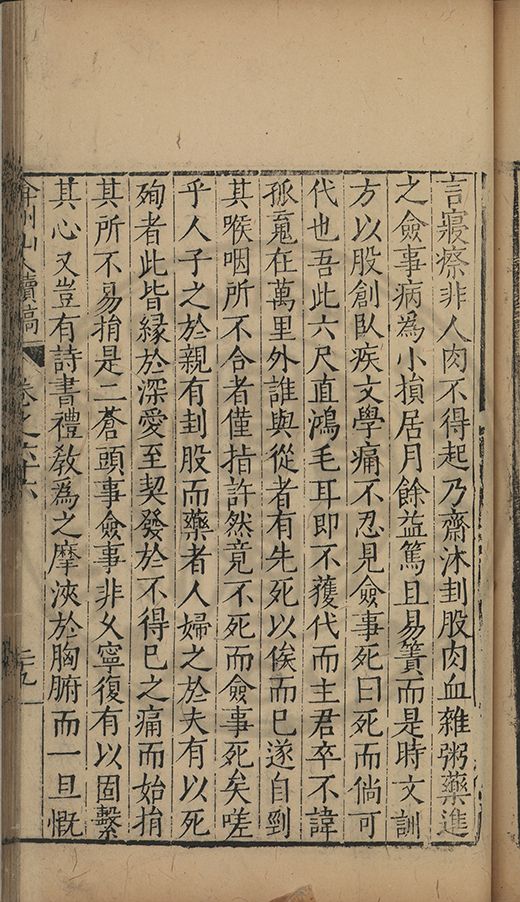 言寢瘵非人肉不得起乃齋沐刲股肉血雜粥藥進
之僉事病為小損居月餘益篤且易簀而是時文訓
方以股創臥疾文學痛不忍見僉事死曰死而倘可
代也吾此六尺直鴻毛耳即不獲代而主君卒不諱
孤䰟在萬里外誰與從者有先死以俟而已遂自剄
其喉咽所不合者僅指許然竟不死而僉事死矣嗟
乎人子之於親有刲股而藥者人婦之於夫有以死
殉者此皆緣於深愛至契發於不得已之痛而始捐
其所不易捐是二蒼頭事僉事非乆寧復有以固繫
其心又豈有詩書禮敎為之摩浹於胸腑而一旦慨
弇州山人續稿 卷之六十六 二十九